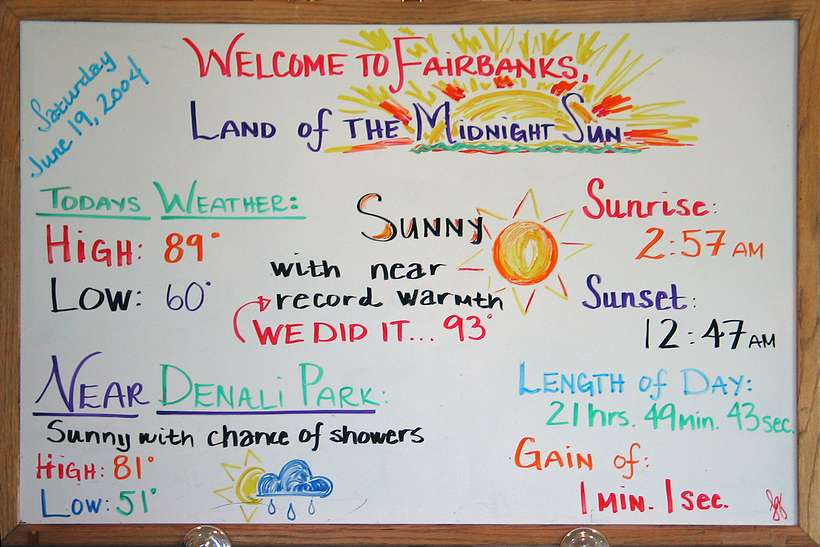 Saturday
June 19, 2004
WELCOME TO FAIRBANKS,
LAND of THE MIDNIGHT SUN
TODAYS WEATHER:
HIGH: 89°
LOW: 60°
SUNNY
with near
record warmth
WE DID IT... 93°
Sunrise:
2:57 AM
Sunset:
12:47 AM
NEAR DENALI PARK:
Sunny with chance of showers
HIGH: 81°
LOW: 51°
LENGTH of DAY:
21 hrs. 49 min. 43 sec.
GAIN of:
1 MIN. 1 sec.